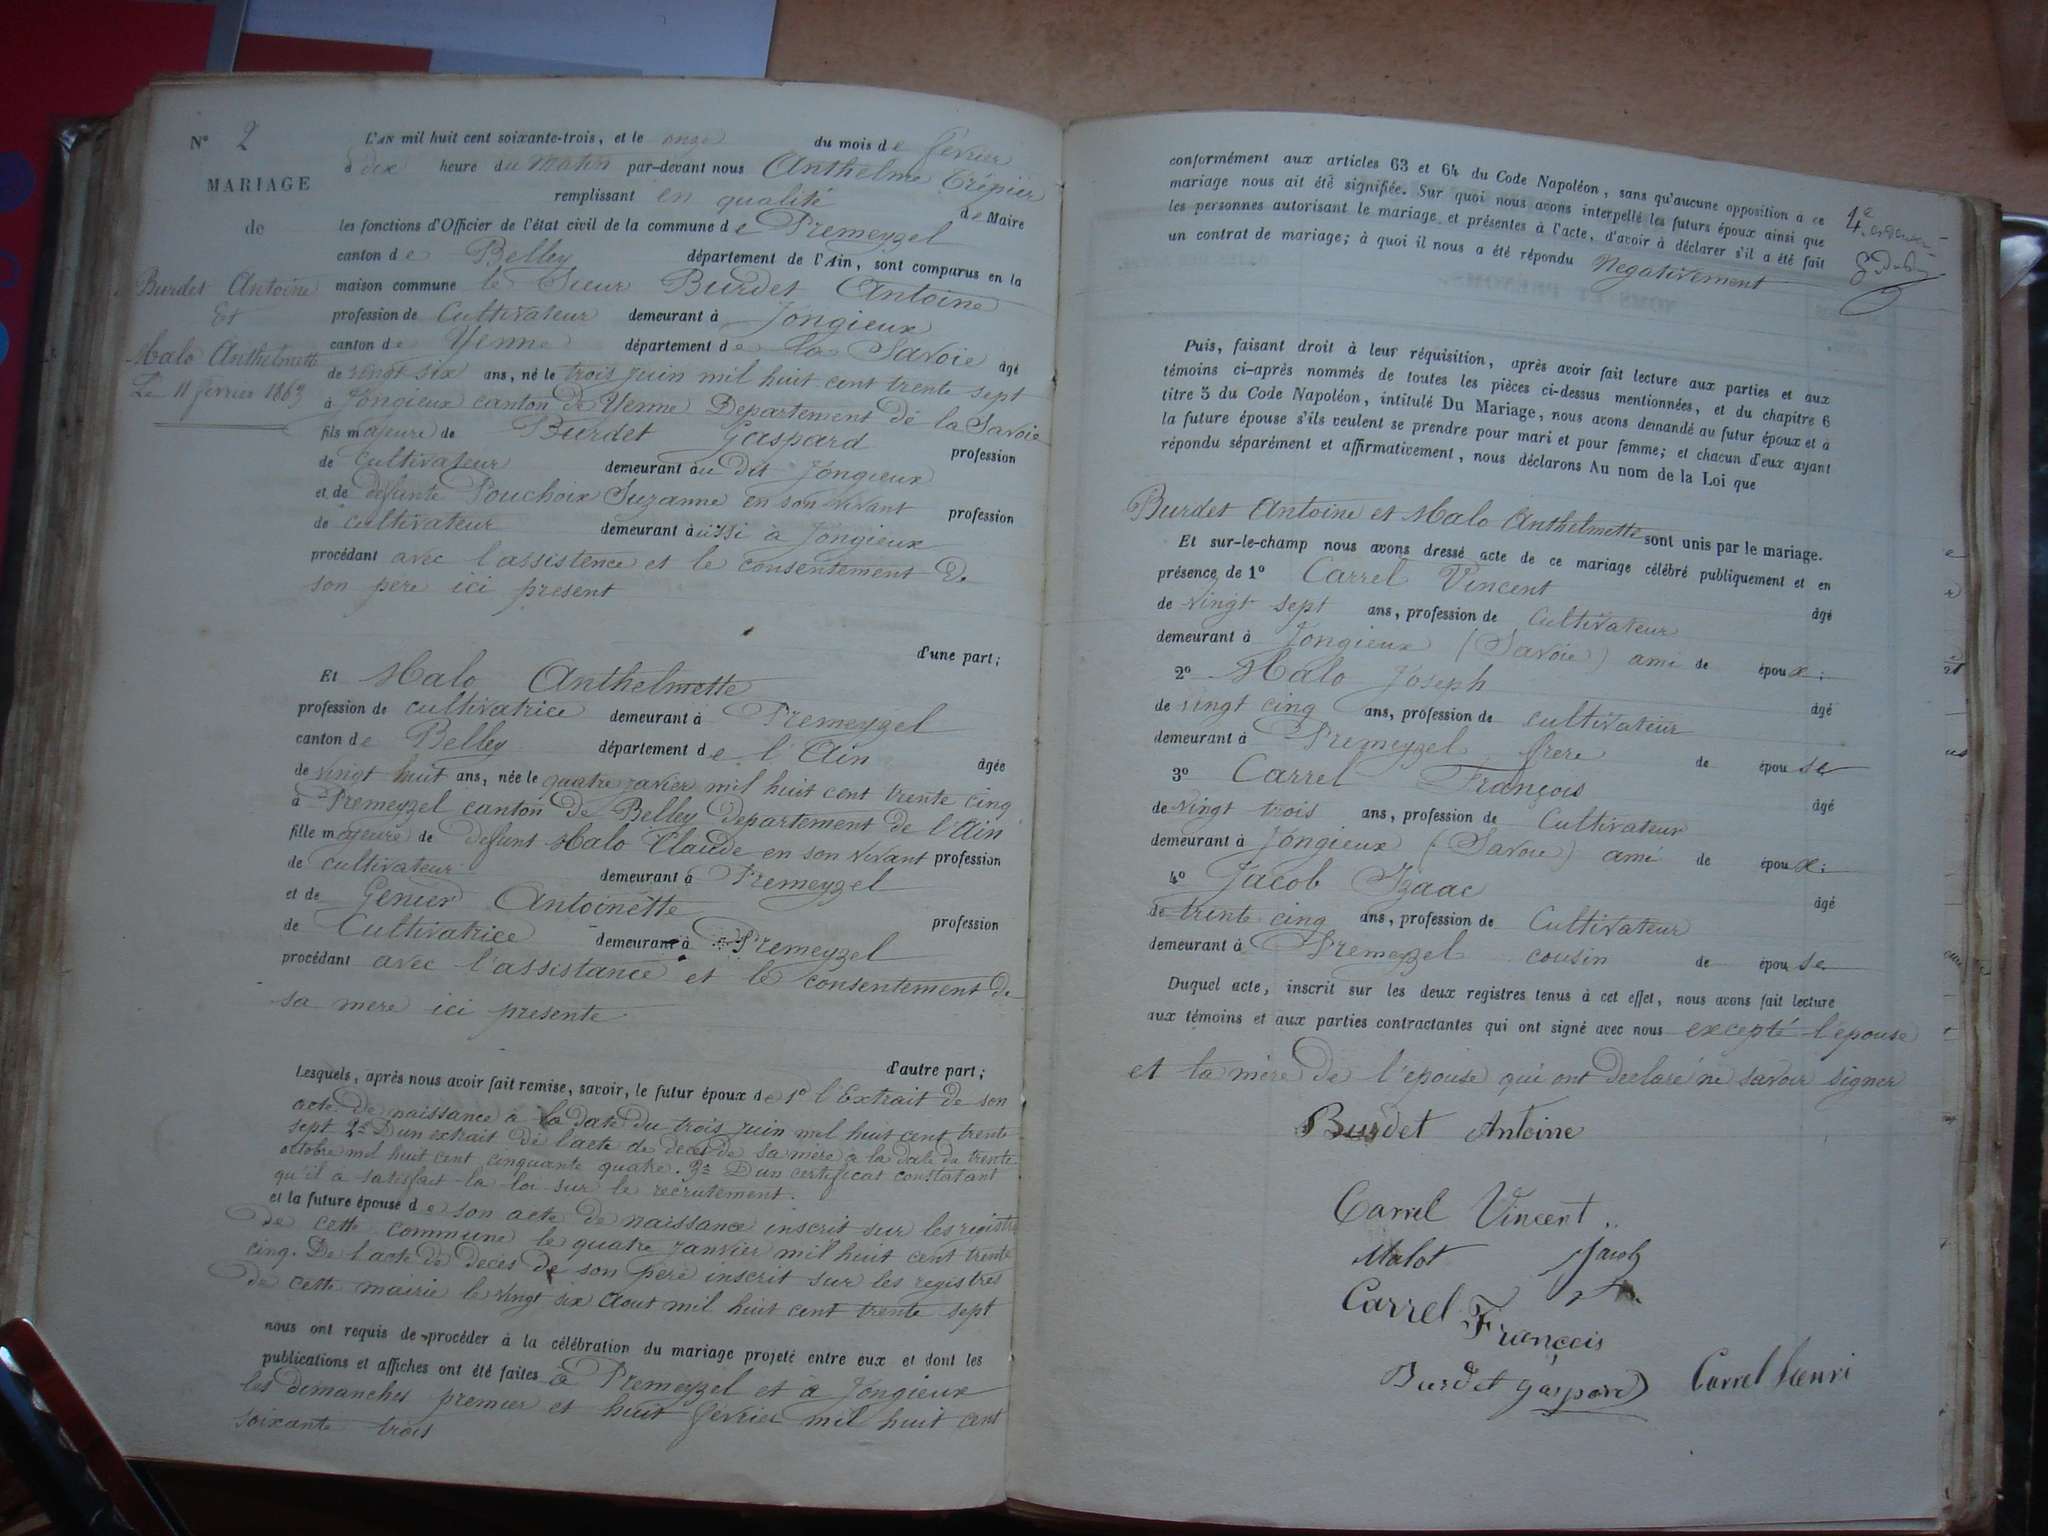 N° 2
MARIAGE
de
Burdet Antoine
Et
Malo Anthelmette
Le 11 février 1863
L'AN mil huit cent soixante-trois, et le onze du mois de fevrier
à dix heure du matin par-devant nous Anthelme Trépier
remplissant en qualité de Maire
les fonctions d'Officier de l'état civil de la commune de Premeyzel
canton de Belley département de l'Ain, sont comparus en la
maison commune le Sieur Burdet Antoine
profession de Cultivateur demeurant à Jongieux
canton de Yenne département de la Savoie âgé
de vingt six ans, né le trois juin mil huit cent trente sept
à Jongieux canton de Yenne Departement de la Savoie
fils majeure de Burdet Gaspard profession
de cultivateur demeurant au dit Jongieux
et de defunte Pouchoix Suzanne en son vivant profession
de cultivateur demeurant aussi à Jongieux
procédant avec l'assistence et le consentement de
son pere ici present
d'une part;
Et Malo Anthelmette
profession de cultivatrice demeurant à Premeyzel
canton de Belley département de l'Ain âgée
de vingt huit ans, née le quatre javier mil huit cent trente cinq
à Premeyzel canton de Belley departement de l'Ain
fille majeure de defunt Malo Claude en son vivant profession
de cultivateur demeurant à Premeyzel
et de Genier Antoinette profession
de Cultivatrice demeurant à Premeyzel
procédant avec l'assistance et le consentement de
sa mere ici presente
d'autre part;
Lesquels, après nous avoir fait remise, savoir, le futur époux de 1° l'Extrait de son
acte de naissance à la date du trois juin mil huit cent trente
sept 2° D'un extrait de l'acte de deces de sa mere à la date du trente
octobre mil huit cent cinquante quatre. 3° D'un certificat constatant
qu'il a satisfait la loi sur le recrutement.
et la future épouse de son acte de naissance inscrit sur les registre
de cette commune le quatre janvier mil huit cent trente
cinq. De l'acte de deces de son pere inscrit sur les registres
de cette mairie le vingt six Aout mil huit cent trente sept
nous ont requis de procéder à la célébration du mariage projeté entre eux et dont les
publications et affiches ont été faites à Premeyzel et à Jongieux
les dimanches premier et huit fevrier mil huit cent
soixante trois
conformément aux articles 63 et 64 du Code Napoléon, sans qu'aucune opposition a ce
mariage nous ait été signifiée. Sur quoi nous avons interpellé les futurs époux ainsi que
les personnes autorisant le mariage et présentes à l'acte, d'avoir à déclarer s'il a été fait
un contrat de mariage; à quoi il nous a été répondu Negativement
Puis, faisant droit à leur réquisition, après avoir fait lecture aux parties et aux
témoins ci-après nommés de toutes les pièces ci-dessus mentionnées, et du chapitre 6
titre 5 du Code Napoléon, intitulé Du Mariage, nous avons demandé au futur époux et à
la future épouse s'ils veulent se prendre pour mari et pour femme; et chacun d'eux ayant
répondu séparément et affirmativement, nous déclarons Au nom de la Loi que
Burdet Antoine et Malo Anthelmette sont unis par le mariage.
Et sur-le-champ nous avons dressé acte de ce mariage célébré publiquement et en
présence de 1° Carrel Vincent âgé
de vingt sept ans, profession de Cultivateur
demeurant à Jongieux (Savoie) ami de époux;
2° Malo Joseph âgé
de vingt cinq ans, profession de cultivateur
demeurant à Premeyzel frere de épouse
3° Carrel François âgé
de vingt trois ans, profession de Cultivateur
demeurant à Jongieux (Savoie) ami de époux;
4° Jacob Izaac âgé
de trente cinq ans, profession de Cultivateur
demeurant à Premeyzel cousin de épouse
Duquel acte, inscrit sur les deux registres tenus à cet effet, nous avons fait lecture
aux témoins et aux parties contractantes qui ont signé avec nous excepté l'epouse
et la mère de l'epouse qui ont declaré ne savoir signer
Burdet Antoine
Carrel Vincent
Malot Jacob
Carrel François
Burdet Gaspard Carrel Henri